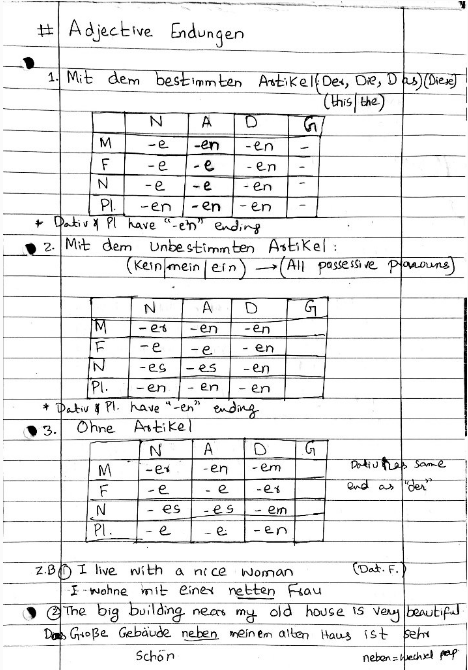 # Adjective Endungen
1. Mit dem bestimmten Artikel (Der, Die, Das) (Diese)
(this/the)
N A D G
M -e -en -en -
F -e -e -en -
N -e -e -en -
Pl. -en -en -en
* Dativ & Pl have "-en" ending
2. Mit dem unbestimmten Artikel :
(Kein/mein/ein) → (All possessive pronouns)
N A D G
M -er -en -en
F -e -e -en
N -es -es -en
Pl. -en -en -en
* Dativ & Pl. have "-en" ending
3. Ohne Artikel
N A D G
M -er -en -em
F -e -e -er
N -es -es -em
Pl. -e -e -en
Dativ has same
end as "der"
Z.B ① I live with a nice woman (Dat. F.)
I wohne mit einer netten Frau
② The big building near my old house is very beautiful.
Das Große Gebäude neben meinem alten Haus ist sehr
schön neben = wechsel prep